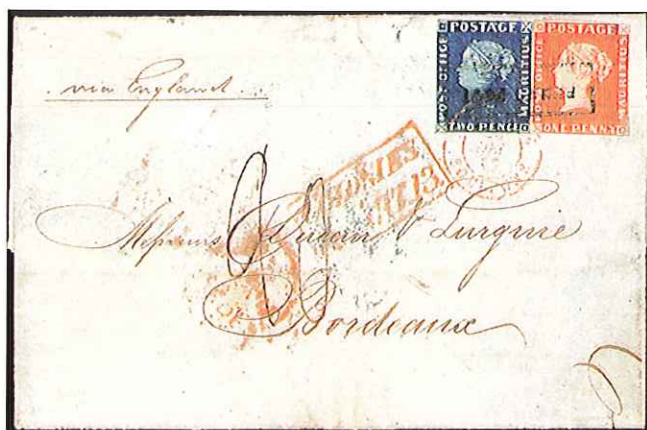 POSTAGE
POST OFFICE
MAURITIUS
TWO PENCE
POSTAGE
POST OFFICE
MAURITIUS
ONE PENNY
via England
COLONIES
ART. 13.
Messieurs Ducau & Lurguie
Bordeaux